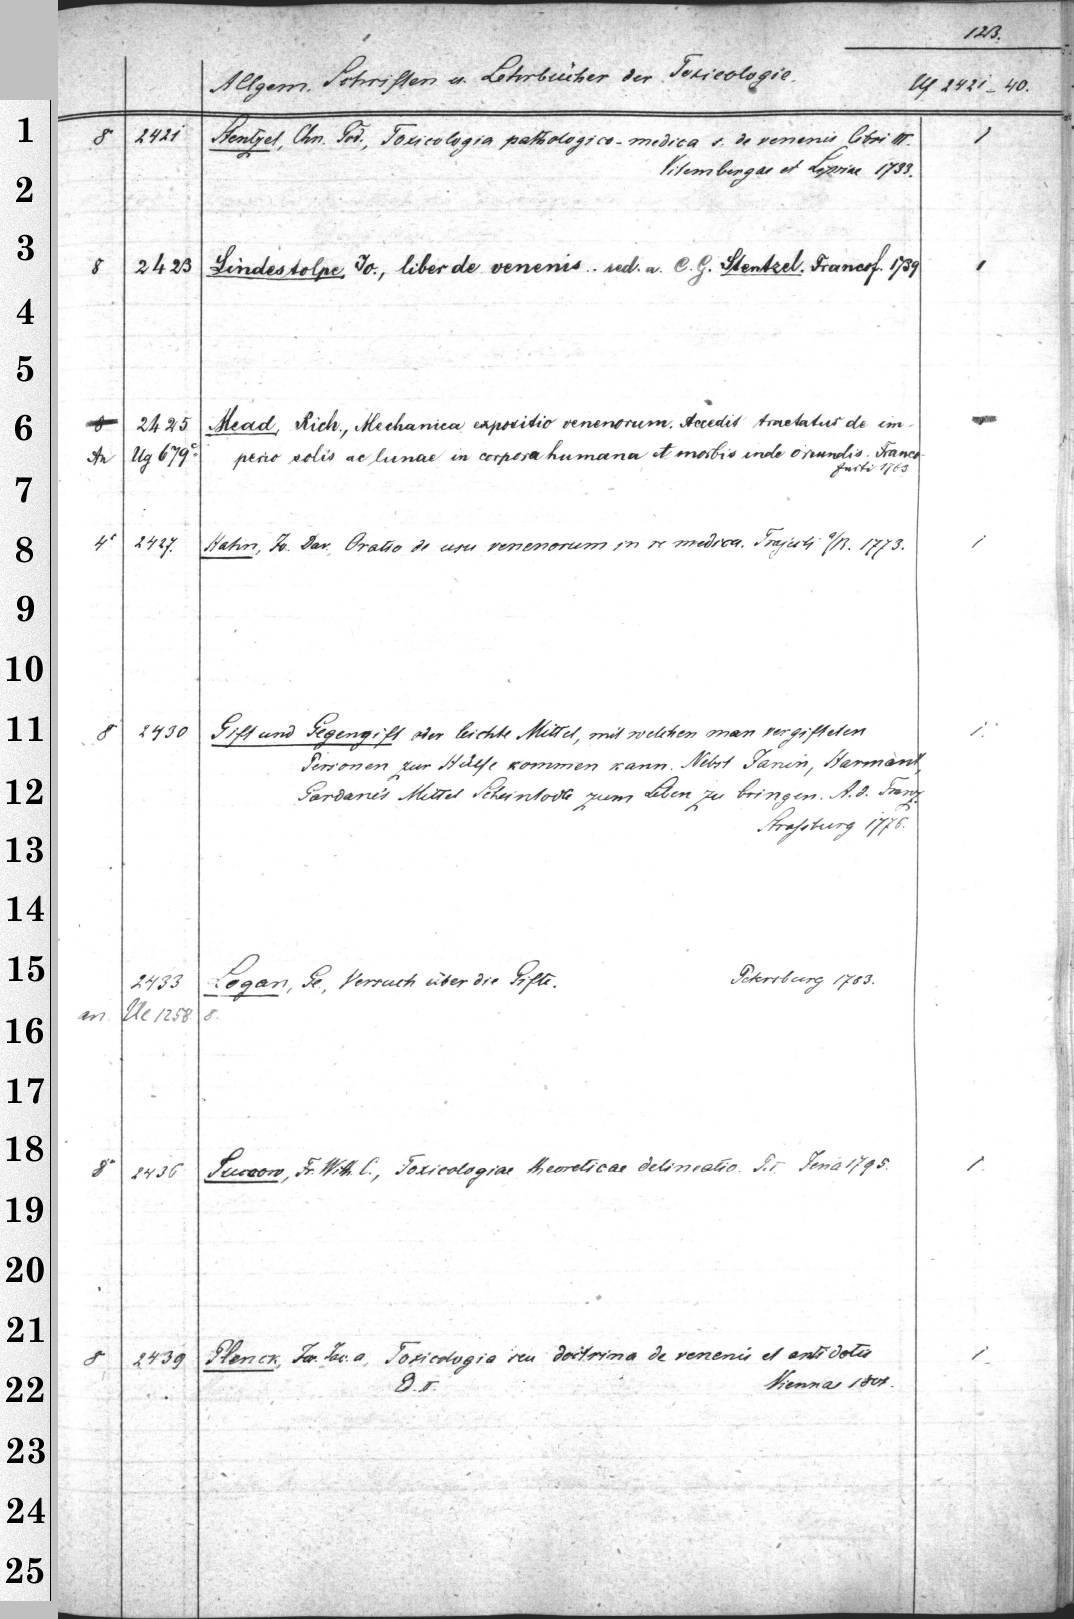 123.
Allgem. Schriften u. Lehrbücher der Toxicologie. Uf 2421-40.
8 2421 Stentzel, Chn. God., Toxicologia pathologico-medica s. de venenis libri III. 1
Vitembergae et Lipsiae 1733.
8 2423 Lindestolpe, Jo., liber de venenis .. red. a. C. G. Stentzel. Francof. 1739 1
8 2425 Mead, Rich., Mechanica expositio venenorum. Accedit tractatus de im-
An Ug 679c. perio solis ac lunae in corpora humana et morbis inde oriundis. Franco-
furti 1763
4° 2427. Hahn, Jo. Dav. Oratio de usu venenorum in re medica. Trajecti a/R. 1773. 1
8 2430 Gift und Gegengift oder leichte Mittel, mit welchen man vergifteten 1.
Personen zur Hülfe kommen kann. Nebst Janin, Harmant,
Gardane's Mittel Scheintodte zum Leben zu bringen. A. d. Franz.
Strassburg 1776.
2433 Logan, Ge., Versuch über die Gifte. Petersburg 1783.
an. Ue 1258 8.
8° 2436 Succow, Fr. Wilh. C., Toxicologiae theoreticae delineatio. P. I. Jena 1795. 1.
8 2439 Plenck, Jos. Jac. a, Toxicologia seu doctrina de venenis et antidotis 1
Viennae